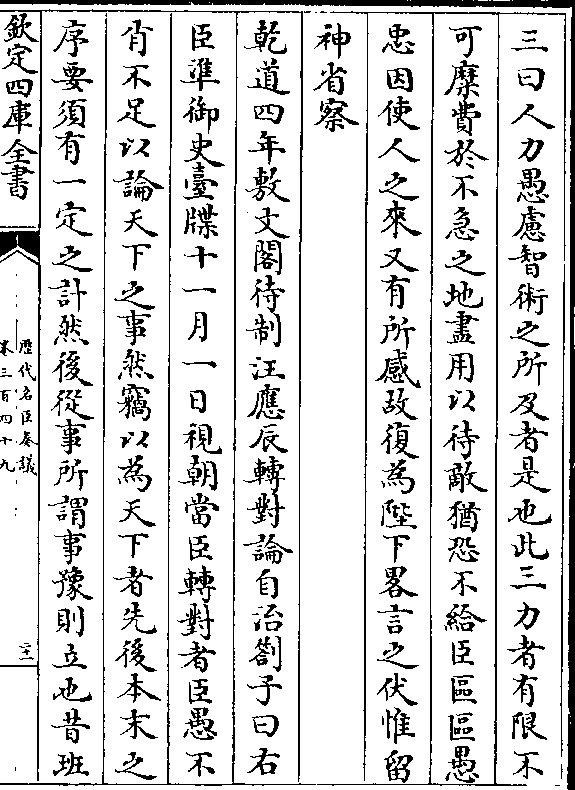 三曰人力愚慮智術之所及者是也此三力者有限不
可糜費於不急之地盡用以待敵猶恐不給臣區區愚
忠因使人之來又有所感故復為陛下畧言之伏惟留
神省察
乾道四年敷文閣待制汪應辰轉對論自治劄子曰右
臣準御史臺牒十一月一日視朝當臣轉對者臣愚不
肖不足以論天下之事然竊以為天下者先後本末之
序要須有一定之計然後從事所謂事豫則立也昔班
欽定四庫全書
歷代名臣奏議
卷三百四十九
二十一